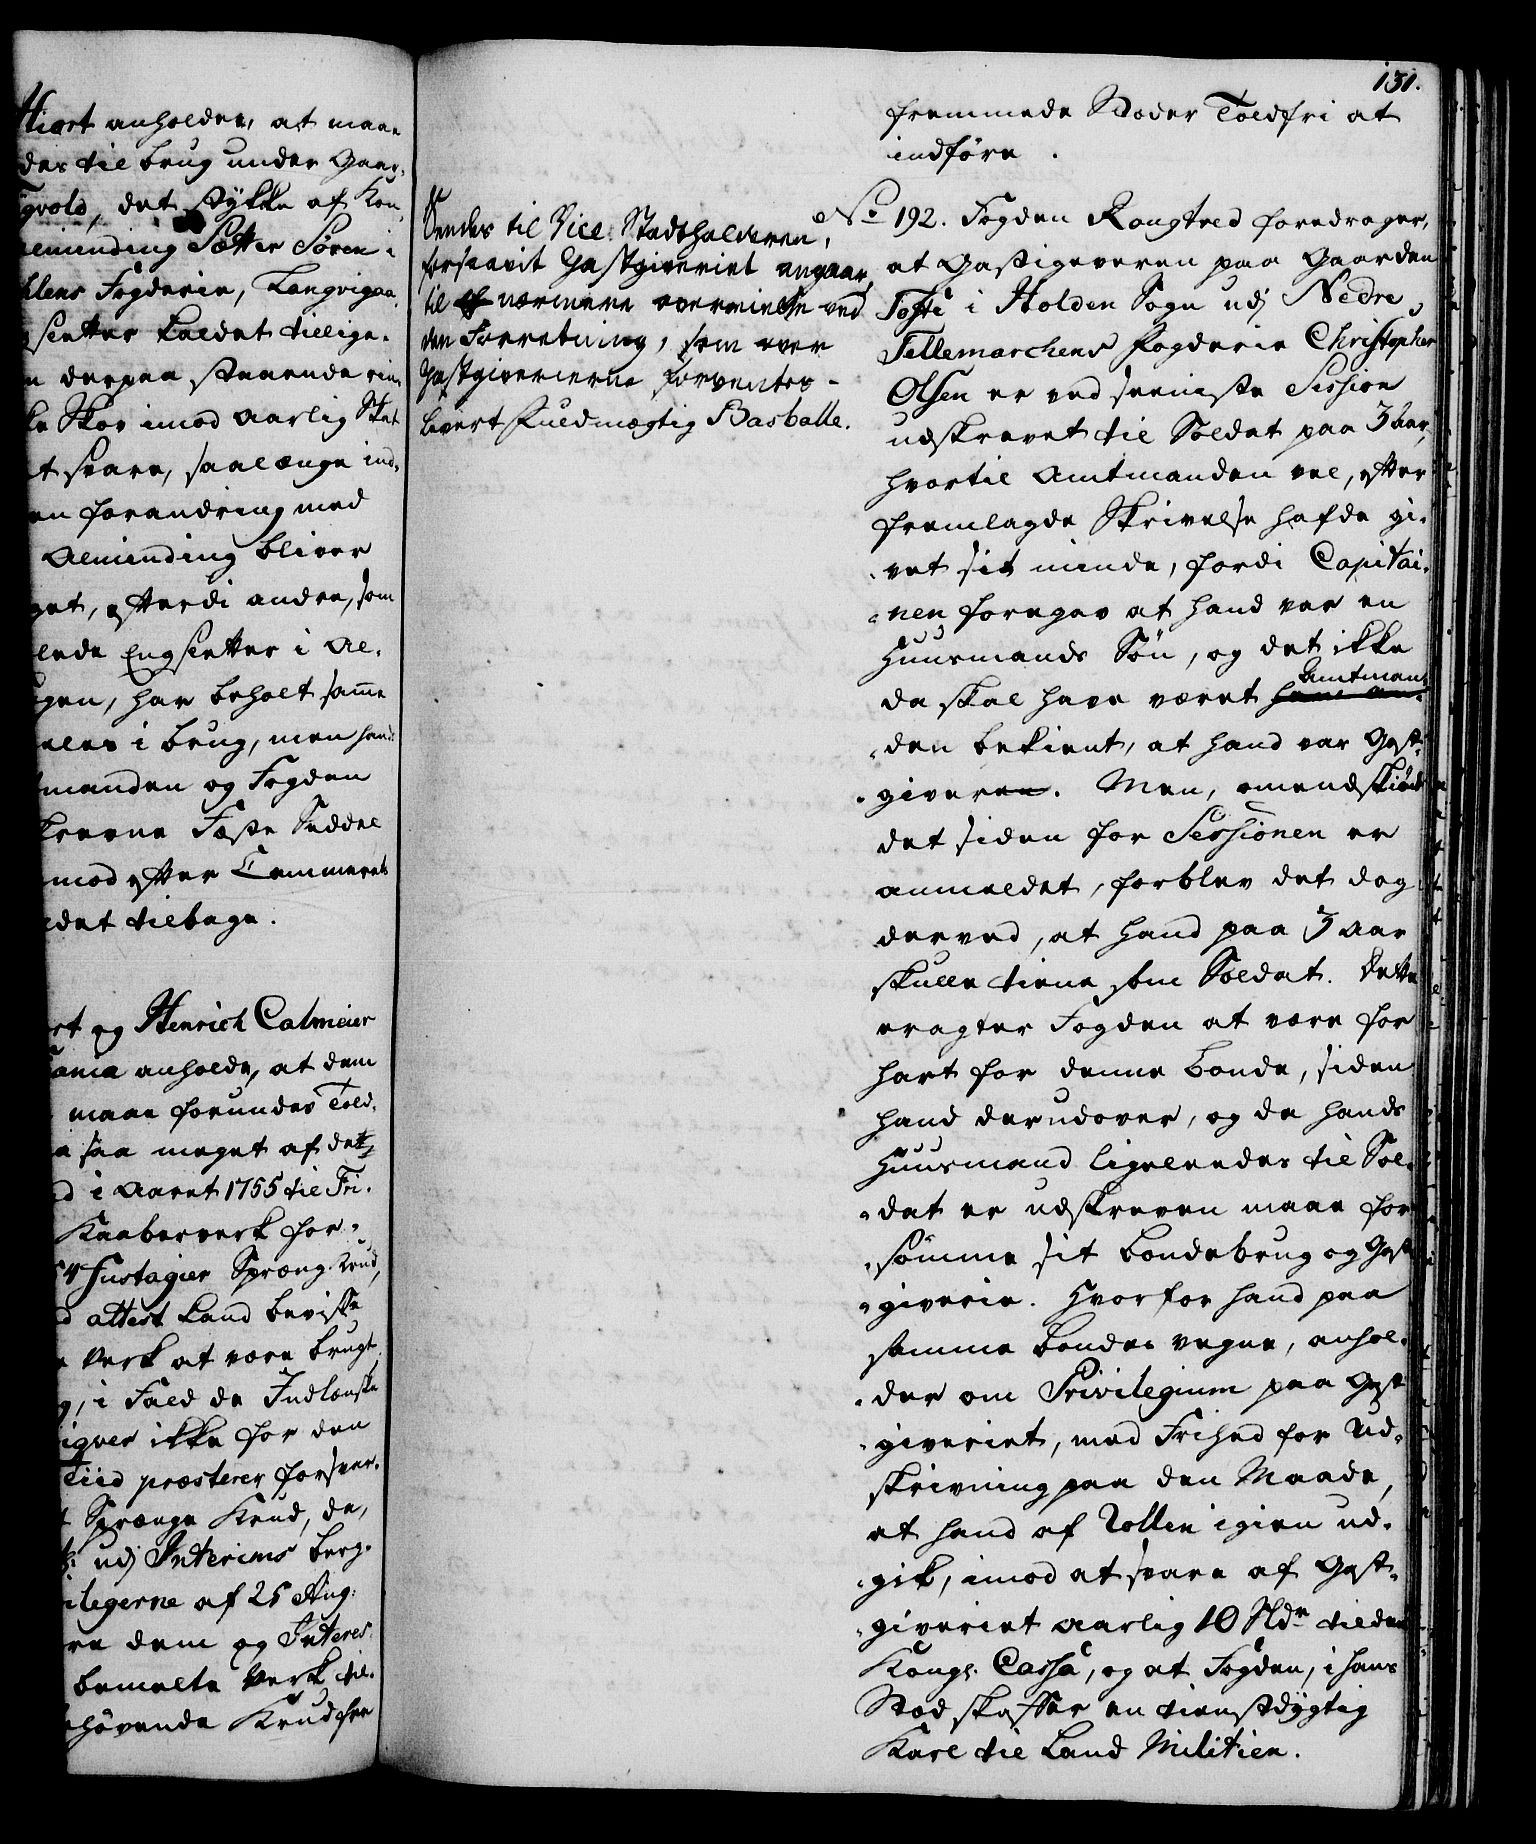 Hiort anholder, at maae
des til brug under Gaar¬
gvold, det stykke af Kon¬
alminding Sætter Søren i
hlens Fogderie, Langvigaa,
sætter kaldet tillige¬
n derpaa staaende rin¬
ke Skov imod aarlig Skat
t svare, saalænge ind¬
en forandring med
Alminding bliver
get, efterdi andre, som
lede Engsletter i Al¬
gen, har beholt samme
eles i brug, men hand
manden og Fogden
krevne Fæste Seddel
mod efter Cammerets
det tilbage.
rt og Henrich Calmeier
ania anholde, at dem
maae forundes Told¬
a saa meget af det
d i Aaret 1755 til Fri¬
Kaaberverk for¬
Fustagier Spræng Krud,
d attest kand bevisse
Verk at være brugt
, i Fald de Indlanske
igver ikke for den
Tiid præsterer forsvar¬
t Sprænge Krud, da,
udj Interims berg¬
ilegerne af 25 Aug:
re dem og Interes¬
bemelte Verk til¬
ehövende Krud fra
Sendes til Vice-Stadtholderen,
forsaavit Gastgiveriet angaar,
til nærmere overveielse ved
den Forretning, som over
Gastgiverierne forventes -
levert Fuldmægtig Basballe.
131.
fremmede Steder Toldfri at
indføre.
No 192. Fogden Rougtved foredrager,
at Gastgiveren paa Gaarden
Tofte i Holden Sogn udj Nedre
Tellemarchens Fogderie Christopher
Olsen er ved seeniste Session
udskrevet til Soldat paa 3 Aar,
hvortil Amtmanden vel, efter
fremlagde Skrivelse hafde gi¬
vet sit minde, fordi Capitai¬
nen foregav at hand var en
Huusmands Søn, og det ikke
da skal have været hans an Amtman¬
den bekient, at hand var Gast¬
giveren. Men, omendskiönt
det siden for Sessionen er
anmeldet, forblev det dog
derved, at hand paa 3 Aar
skulle tiene som Soldat. Dette
eragter Fogden at være for
hart for denne bonde, siden
hand derudover, og da hands
Huusmand ligeleedes til Sol¬
dat er udskreven maae for
sömme sit bondebrug og Gast
giverie. Hvorfor hand paa
samme bondes vegne, anhol¬
der om Privilegium paa Gast
giveriet, med Frihed for Ud¬
skrivning paa den Maade,
at hand af Rollen igien ud¬
gik, imod at svare af Gast¬
giveriet aarlig 10 Rdr til den
Kongl. Cassa, og at Fogden, i hans
Sted skaffer en tienstdygtig
Karl til Land Militien.